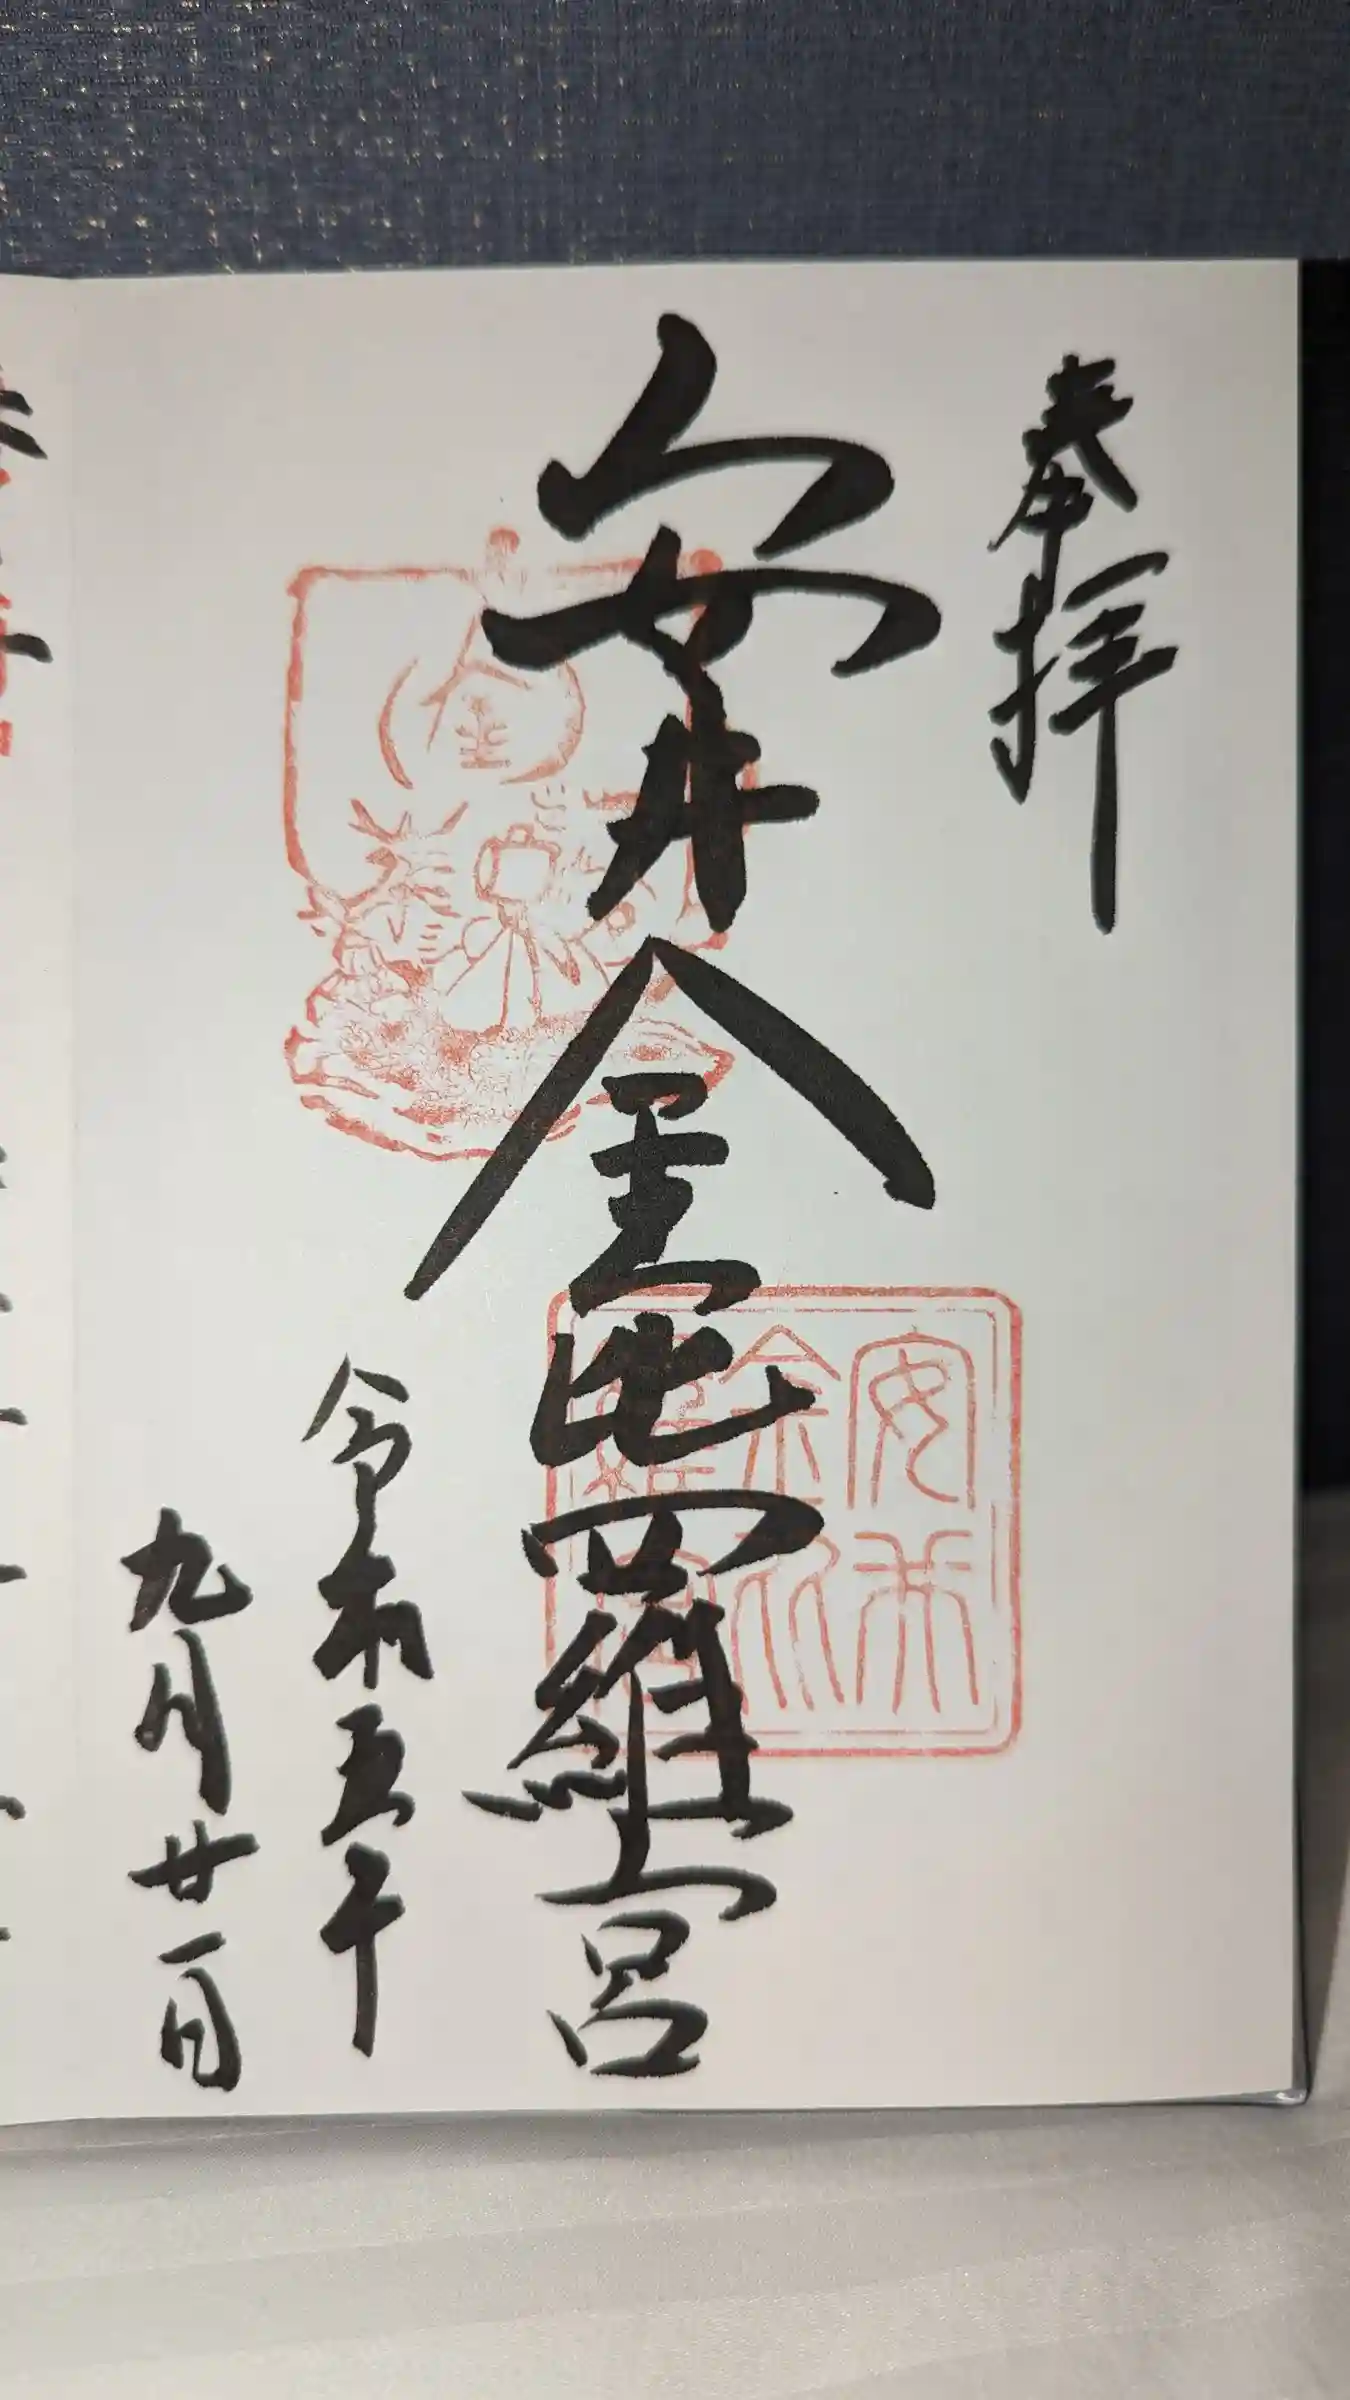 奉拝
安井金比羅宮
令和五年
九月廿一日
金
安井金比羅宮